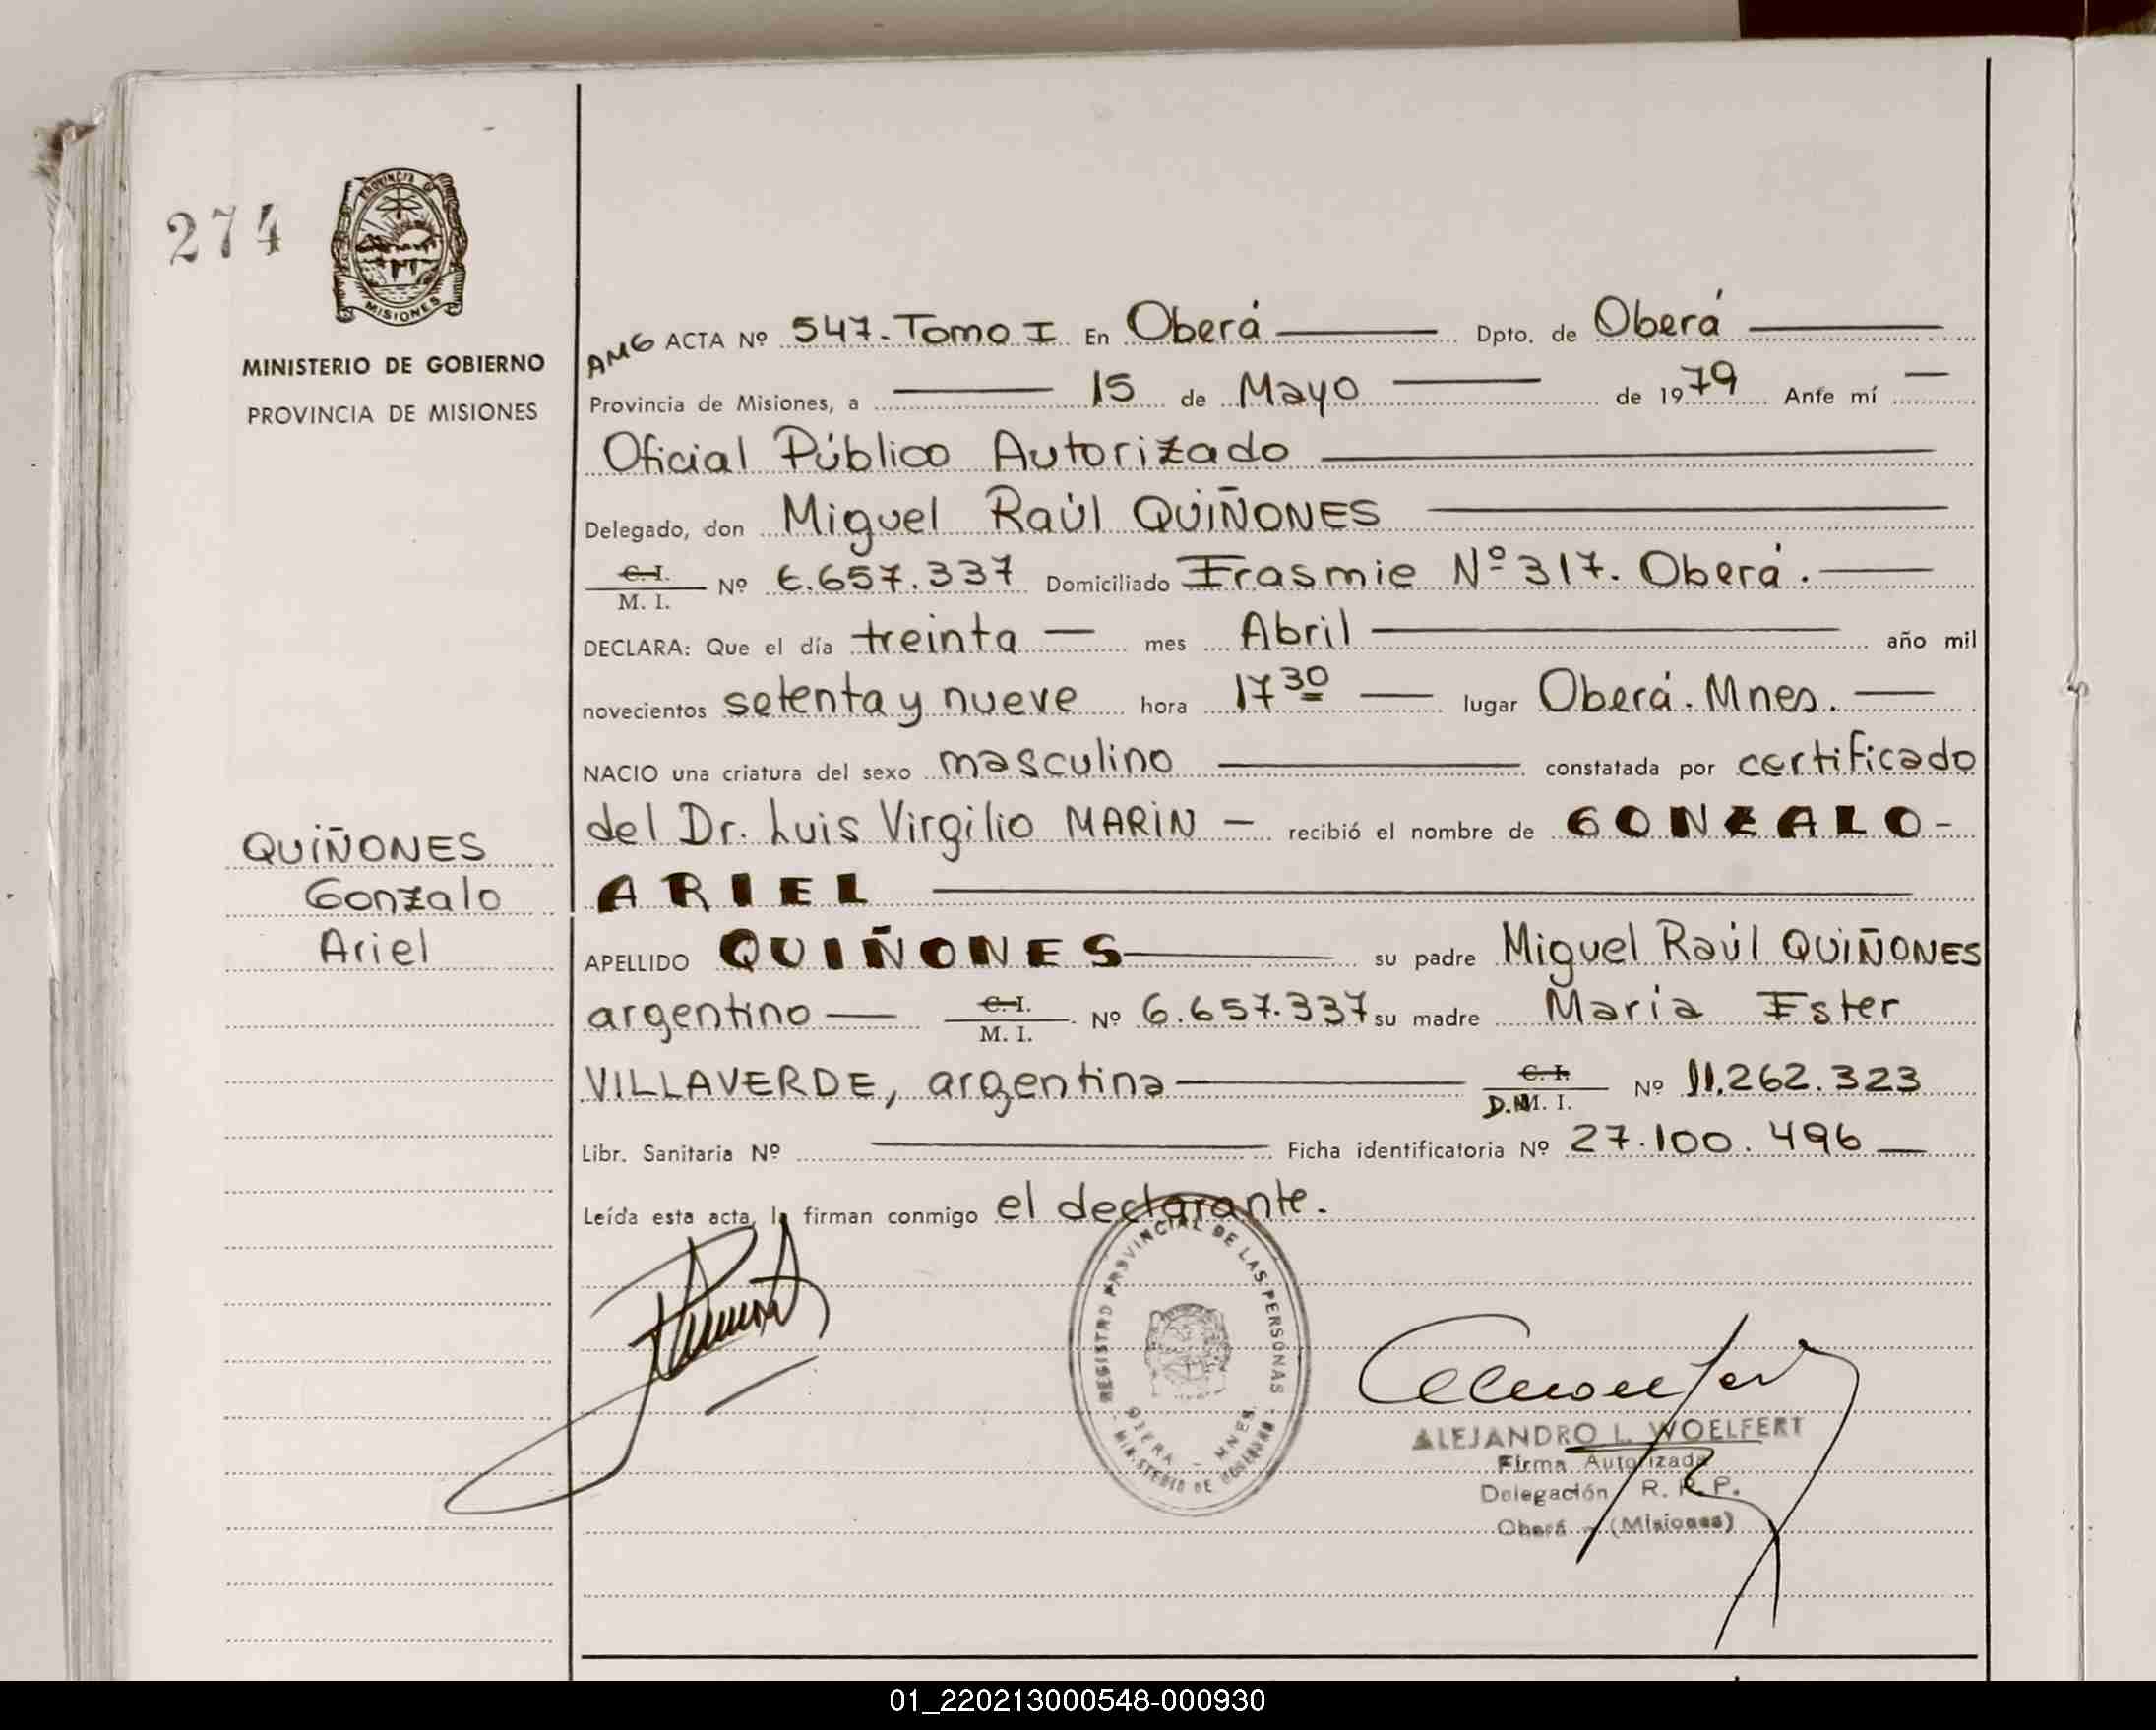 274
PROVINCIA D
MISIONES
MINISTERIO DE GOBIERNO
PROVINCIA DE MISIONES
AMG ACTA Nº 547. Tomo I En Oberá Dpto. de Oberá
Provincia de Misiones, a 15 de Mayo de 1979 Ante mí
Oficial Público Autorizado
Delegado, don Miguel Raúl QUIÑONES
C. I.
M. I. Nº 6.657.337 Domiciliado Frasmie Nº 317. Oberá.
DECLARA: Que el día treinta mes Abril año mil
novecientos setenta y nueve hora 17 30 lugar Oberá. Mnes.
NACIO una criatura del sexo masculino constatada por certificado
del Dr. Luis Virgilio MARIN recibió el nombre de GONZALO-
ARIEL
QUIÑONES
Gonzalo
Ariel
APELLIDO QUIÑONES su padre Miguel Raúl QUIÑONES
argentino C. I.
M. I. Nº 6.657.337 su madre Maria Ester
VILLAVERDE, argentina C. I.
D. M. I. Nº 11.262.323
Libr. Sanitaria Nº Ficha identificatoria Nº 27.100.496
Leída esta acta, l firman conmigo el declarante.
REGISTRO PROVINCIAL DE LAS PERSONAS
OBERA - MNES.
MINISTERIO DE GOBIERNO
ALEJANDRO L. WOELFERT
Firma Autorizada
Delegación R. P. P.
Oberá - (Misiones)
01_220213000548-000930